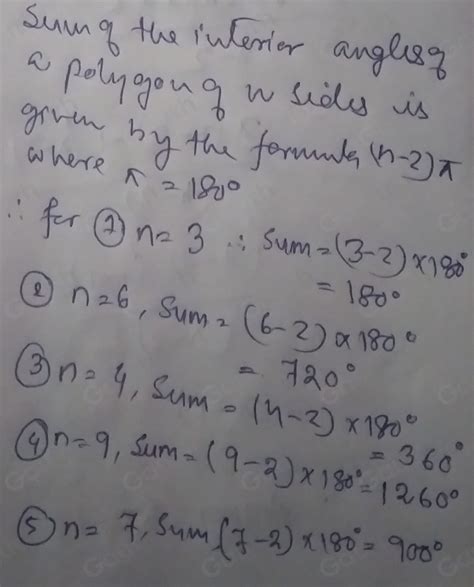 Sum of the interior angles of
a polygon of n sides is
given by the formula (n-2)π
where π = 180°
∴ for ① n= 3 ∴ Sum=(3-2)×180°
= 180°
② n=6, Sum= (6-2)×180°
= 720°
③ n= 4, Sum = (4-2)×180°
= 360°
④ n=9, Sum=(9-2)×180°=1260°
⑤ n= 7, Sum(7-2)×180°= 900°